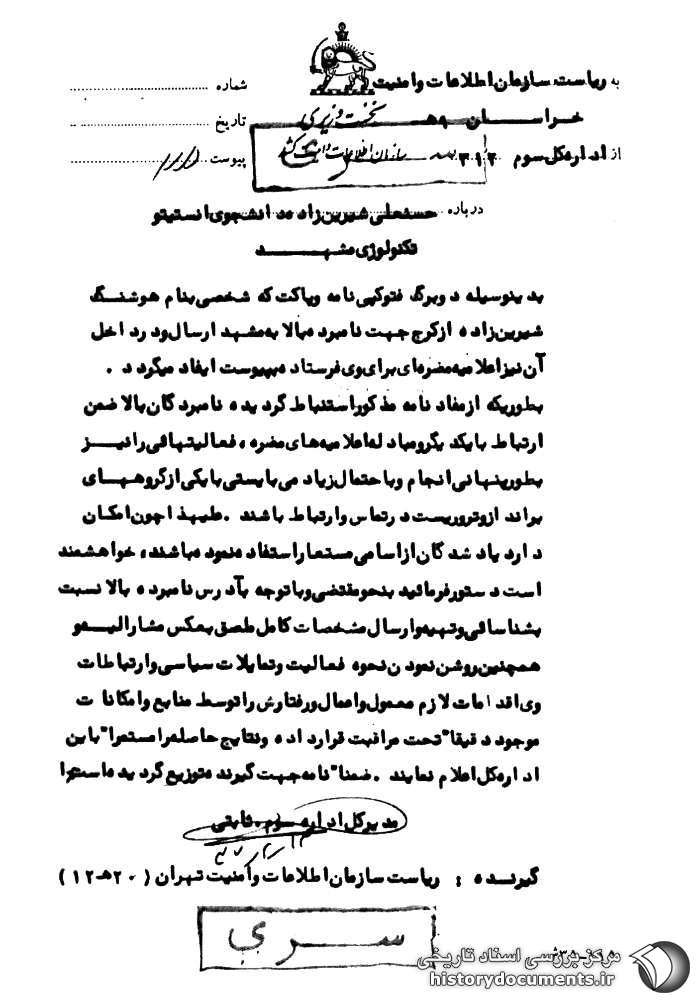 به ریاست سازمان اطلاعات و امنیت
شماره
خراسان
نخست وزیری
تاریخ
از اداره کل سوم ۳۱۲
سازمان اطلاعات و امنیت کشور
پیوست
درباره حسنعلی شیرین زاده دانشجوی انستیتو
تکنولوژی مشهد
بدینوسیله دوبرگ فتوکپی نامه وپاکت که شخصی بنام هوشنگ
شیرین زاده ازکرج جهت نامبرده بالا به مشهد ارسال ودرداخل
آن نیز اعلامیه مضره ای برای وی فرستاده به پیوست ایفاد میگردد .
بطوریکه ازمفاد نامه مذکور استنباط گردیده نامبردگان بالا ضمن
ارتباط بایکدیگر ومبادله اعلامیه های مضره، فعالیتهائی را نیز
بطورپنهانی انجام وباحتمال زیاد می بایستی بایکی ازگروههای
برانداز وتروریست درتماس وارتباط باشند . علیهذا چون امکان
دارد یادشدگان ازاسامی مستعار استفاده نموده باشند، خواهشمند
است دستورفرمائید بنحو مقتضی وباتوجه بآدرس نامبرده بالا نسبت
بشناسائی وتهیه وارسال مشخصات کامل ملصق بعکس مشارالیه و
همچنین روشن نمودن نحوه فعالیت وتمایلات سیاسی وارتباطات
وی اقدامات لازم معمول واعمال ورفتارش را توسط منابع وامکانات
موجود دقیقا" تحت مراقبت قرارداده ونتایج حاصله را مستمرا" باین
اداره کل اعلام نمایند . ضمنا" نامه جهت گیرنده توزیع گردیده است
مدیرکل اداره سوم . ثابتی
گیرنده : ریاست سازمان اطلاعات وامنیت تهران ( ۲۰هـ۱۲ )
سری
مرکز بررسی اسناد تاریخی
historydocuments.ir